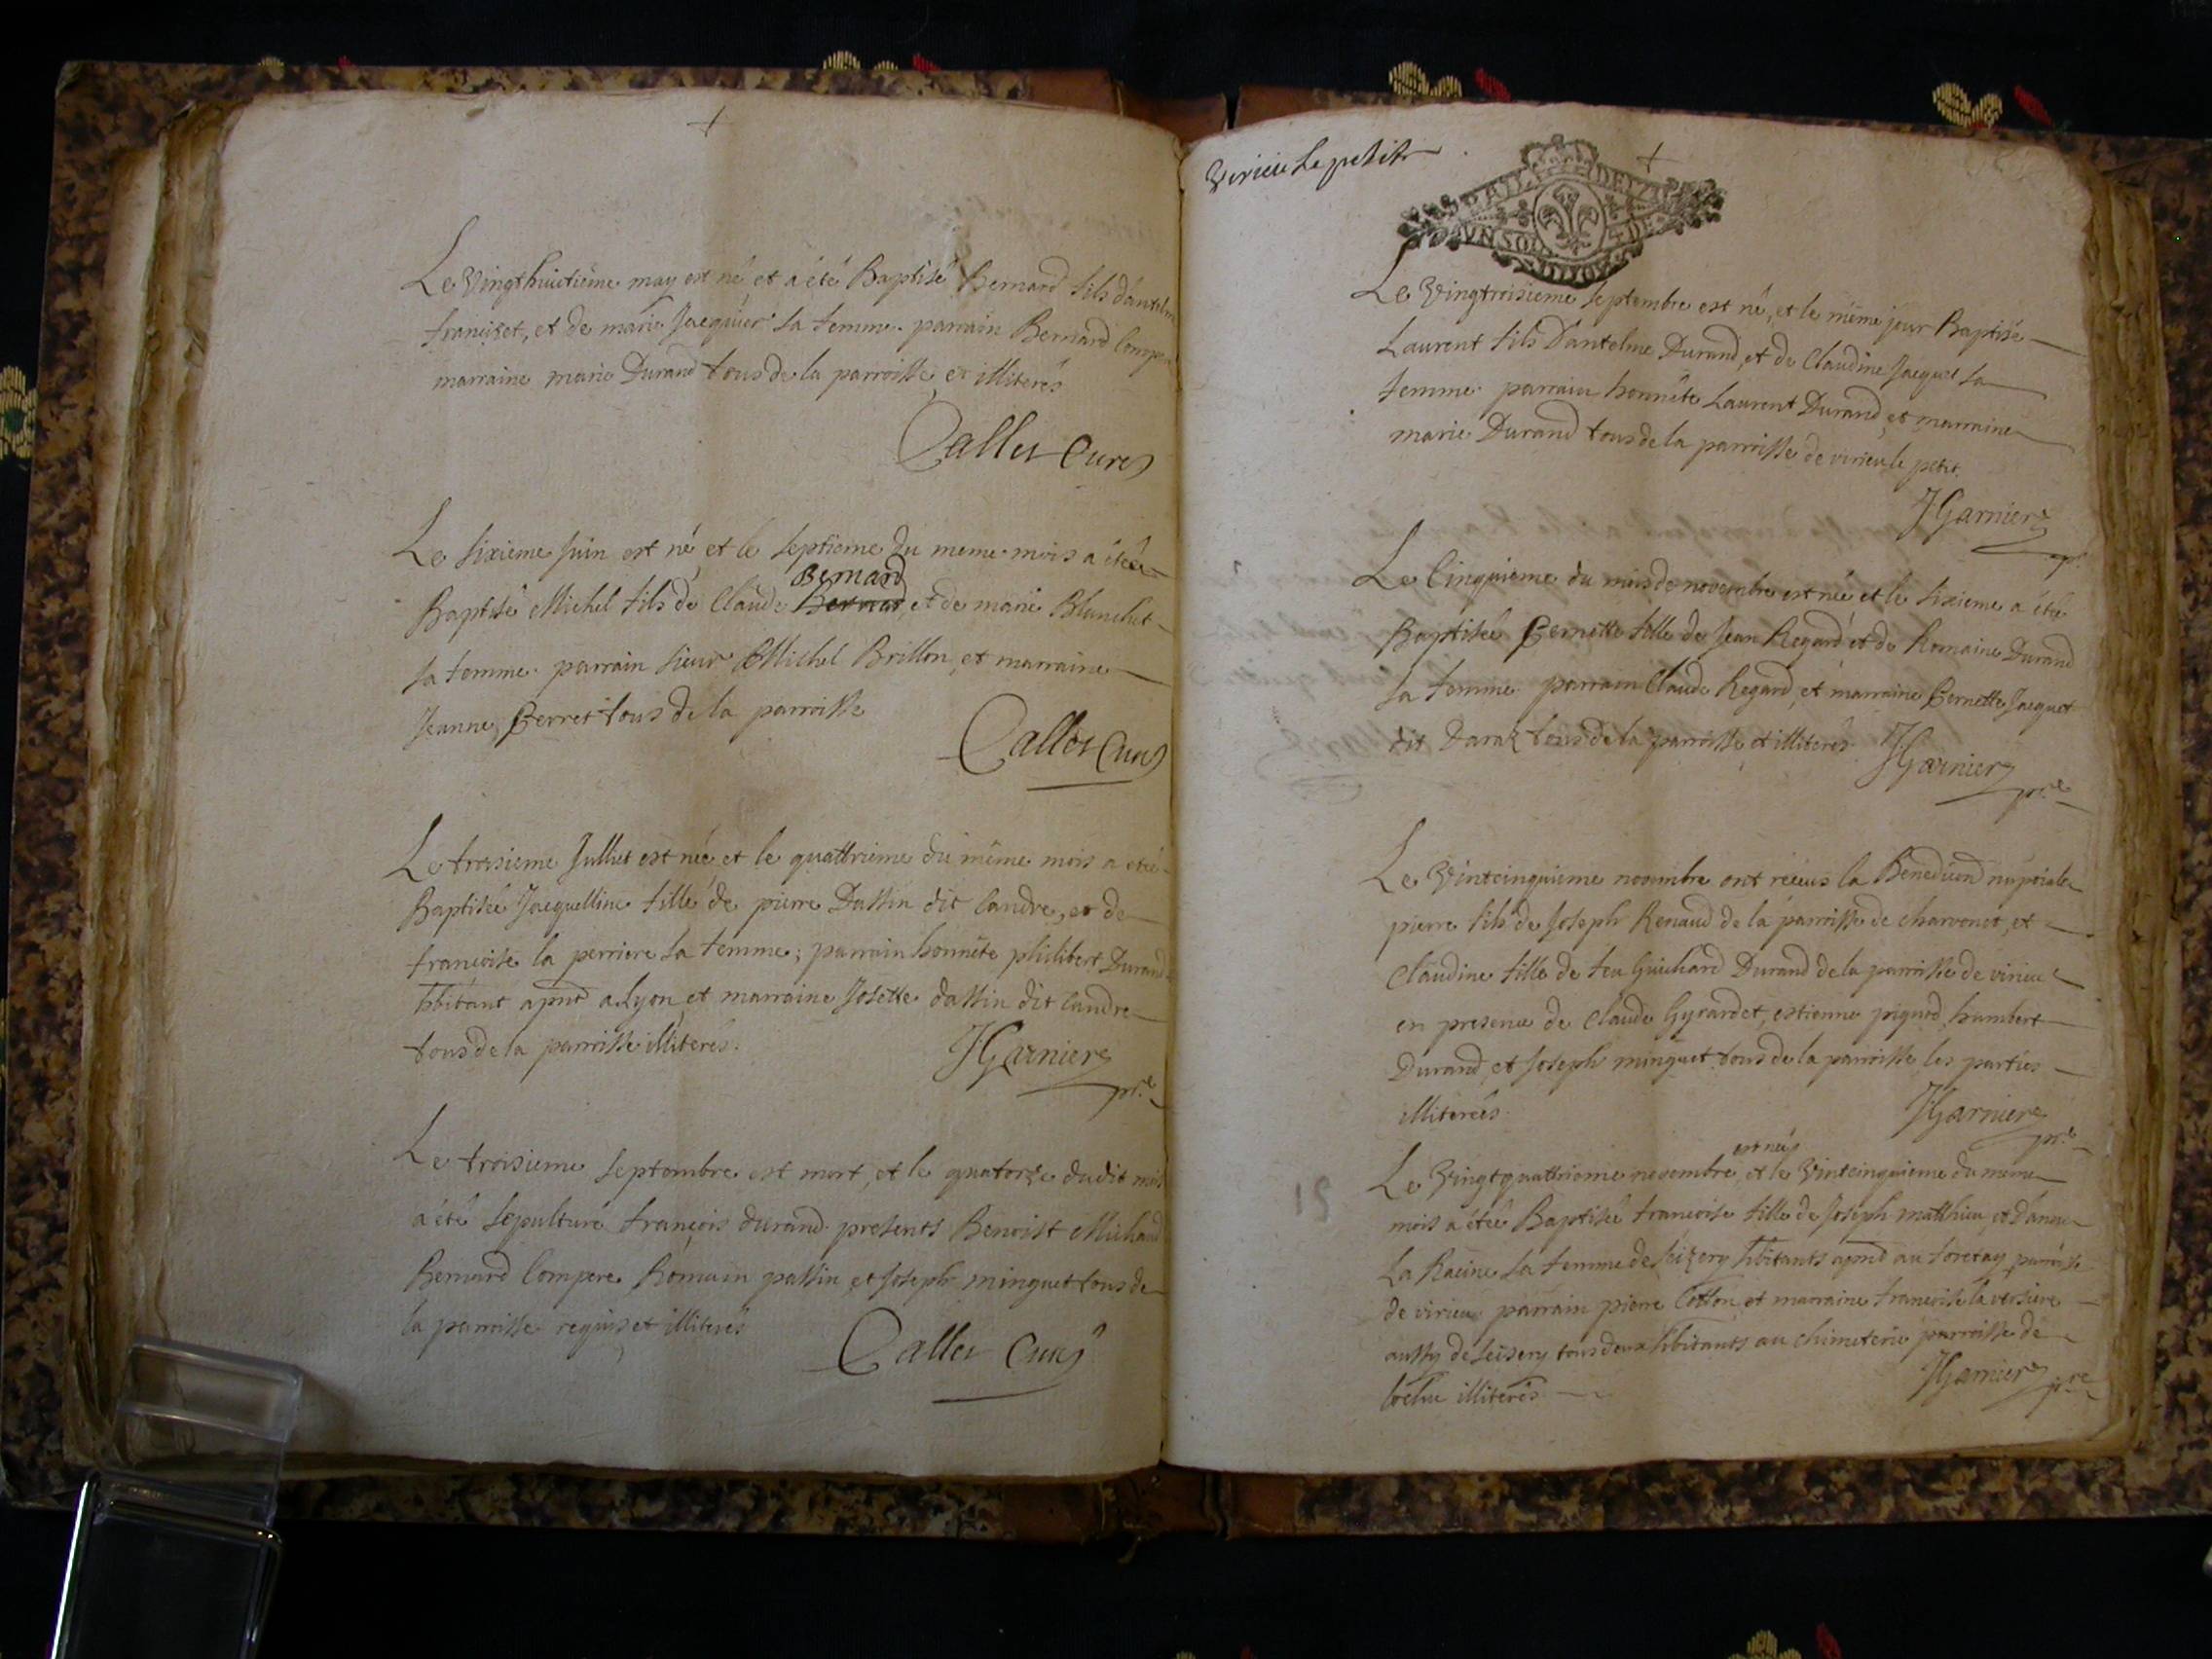 Le Vingthuictieme may est né et a été Baptisé Bernard fils dantelme
françet, et de marie Jacquier sa femme. parrain Bernard Compere
marraine marie Durand tous de la parroisse et illiterés
Callet Curé
Le sixieme Juin est né, et le septieme du meme mois a été
Bernard
Baptisé Michel fils de Claude Bernard, et de marie Blanchet
sa femme. parrain sieur Michel Brillon, et marraine
Jeanne Perret tous de la parroisse
Callet Curé
Le troisieme Julliet est née et le quattrieme du même mois a eté
Baptisée Jacquelline fille de pierre Dassin dit Candre, et de
francoise la perriere sa femme; parrain honnête philibert Durand
hbitant apnt a Lyon et marraine Josette dassin dit Candre
tous de la parroisse illiterés.
JGarnier
pre
Le troisieme septembre est mort, et le quatorze dudit mois
a été sepulturé françois durand. presents Benoist Michaud
Bernard Compere Romain passin et Joseph minguet tous de
la parroisse requis et illiterés
Callet Curé
Virieu Le petit
GNAT. DEUX
UN SOL 4 DE
Le Vingtroisieme septembre est né, et le même jour Baptisé
Laurent fils Dantelme Durand, et de Claudine Jacquet sa
femme. parrain honnête Laurent Durand, et marraine
marie Durand tous de la parroisse de virieu le petit.
JGarnier
pr
Le Cinquieme du mois de novembre est née et le sixieme a été
Baptisée Pernette fille de Jean Regard et de Romaine Durand
sa femme. parrain Claude Regard, et marraine Pernette Jacquet
dit Daraz tous de la parroisse et illiterés.
JGarnier
pre
Le Vintcinquieme novembre ont réceus la Benediction nuptiale
pierre fils de Joseph Renaud de la parroisse de charvonet, et
Claudine fille de feu Guichard Durand de la parroisse de virieu
en presence de Claude Gyrardet, estienne piquod, humbert
Durand, et Joseph minguet tous de la parroisse les parties
illiterées
JGarnier
pre
est née
Le Vingtquattrieme novembre, et le Vintcinquieme du meme
mois a étée Baptisée francoise fille de Joseph matthieu et danne
La Racine sa femme de seizery hbitants apnt au foretay parroisse
de virieu parrain pierre Cotton, et marraine francoise la versiere
aussy de seisery tous deux hbitants au chimeterie parroisse de
illiterés
JGarnier
pre